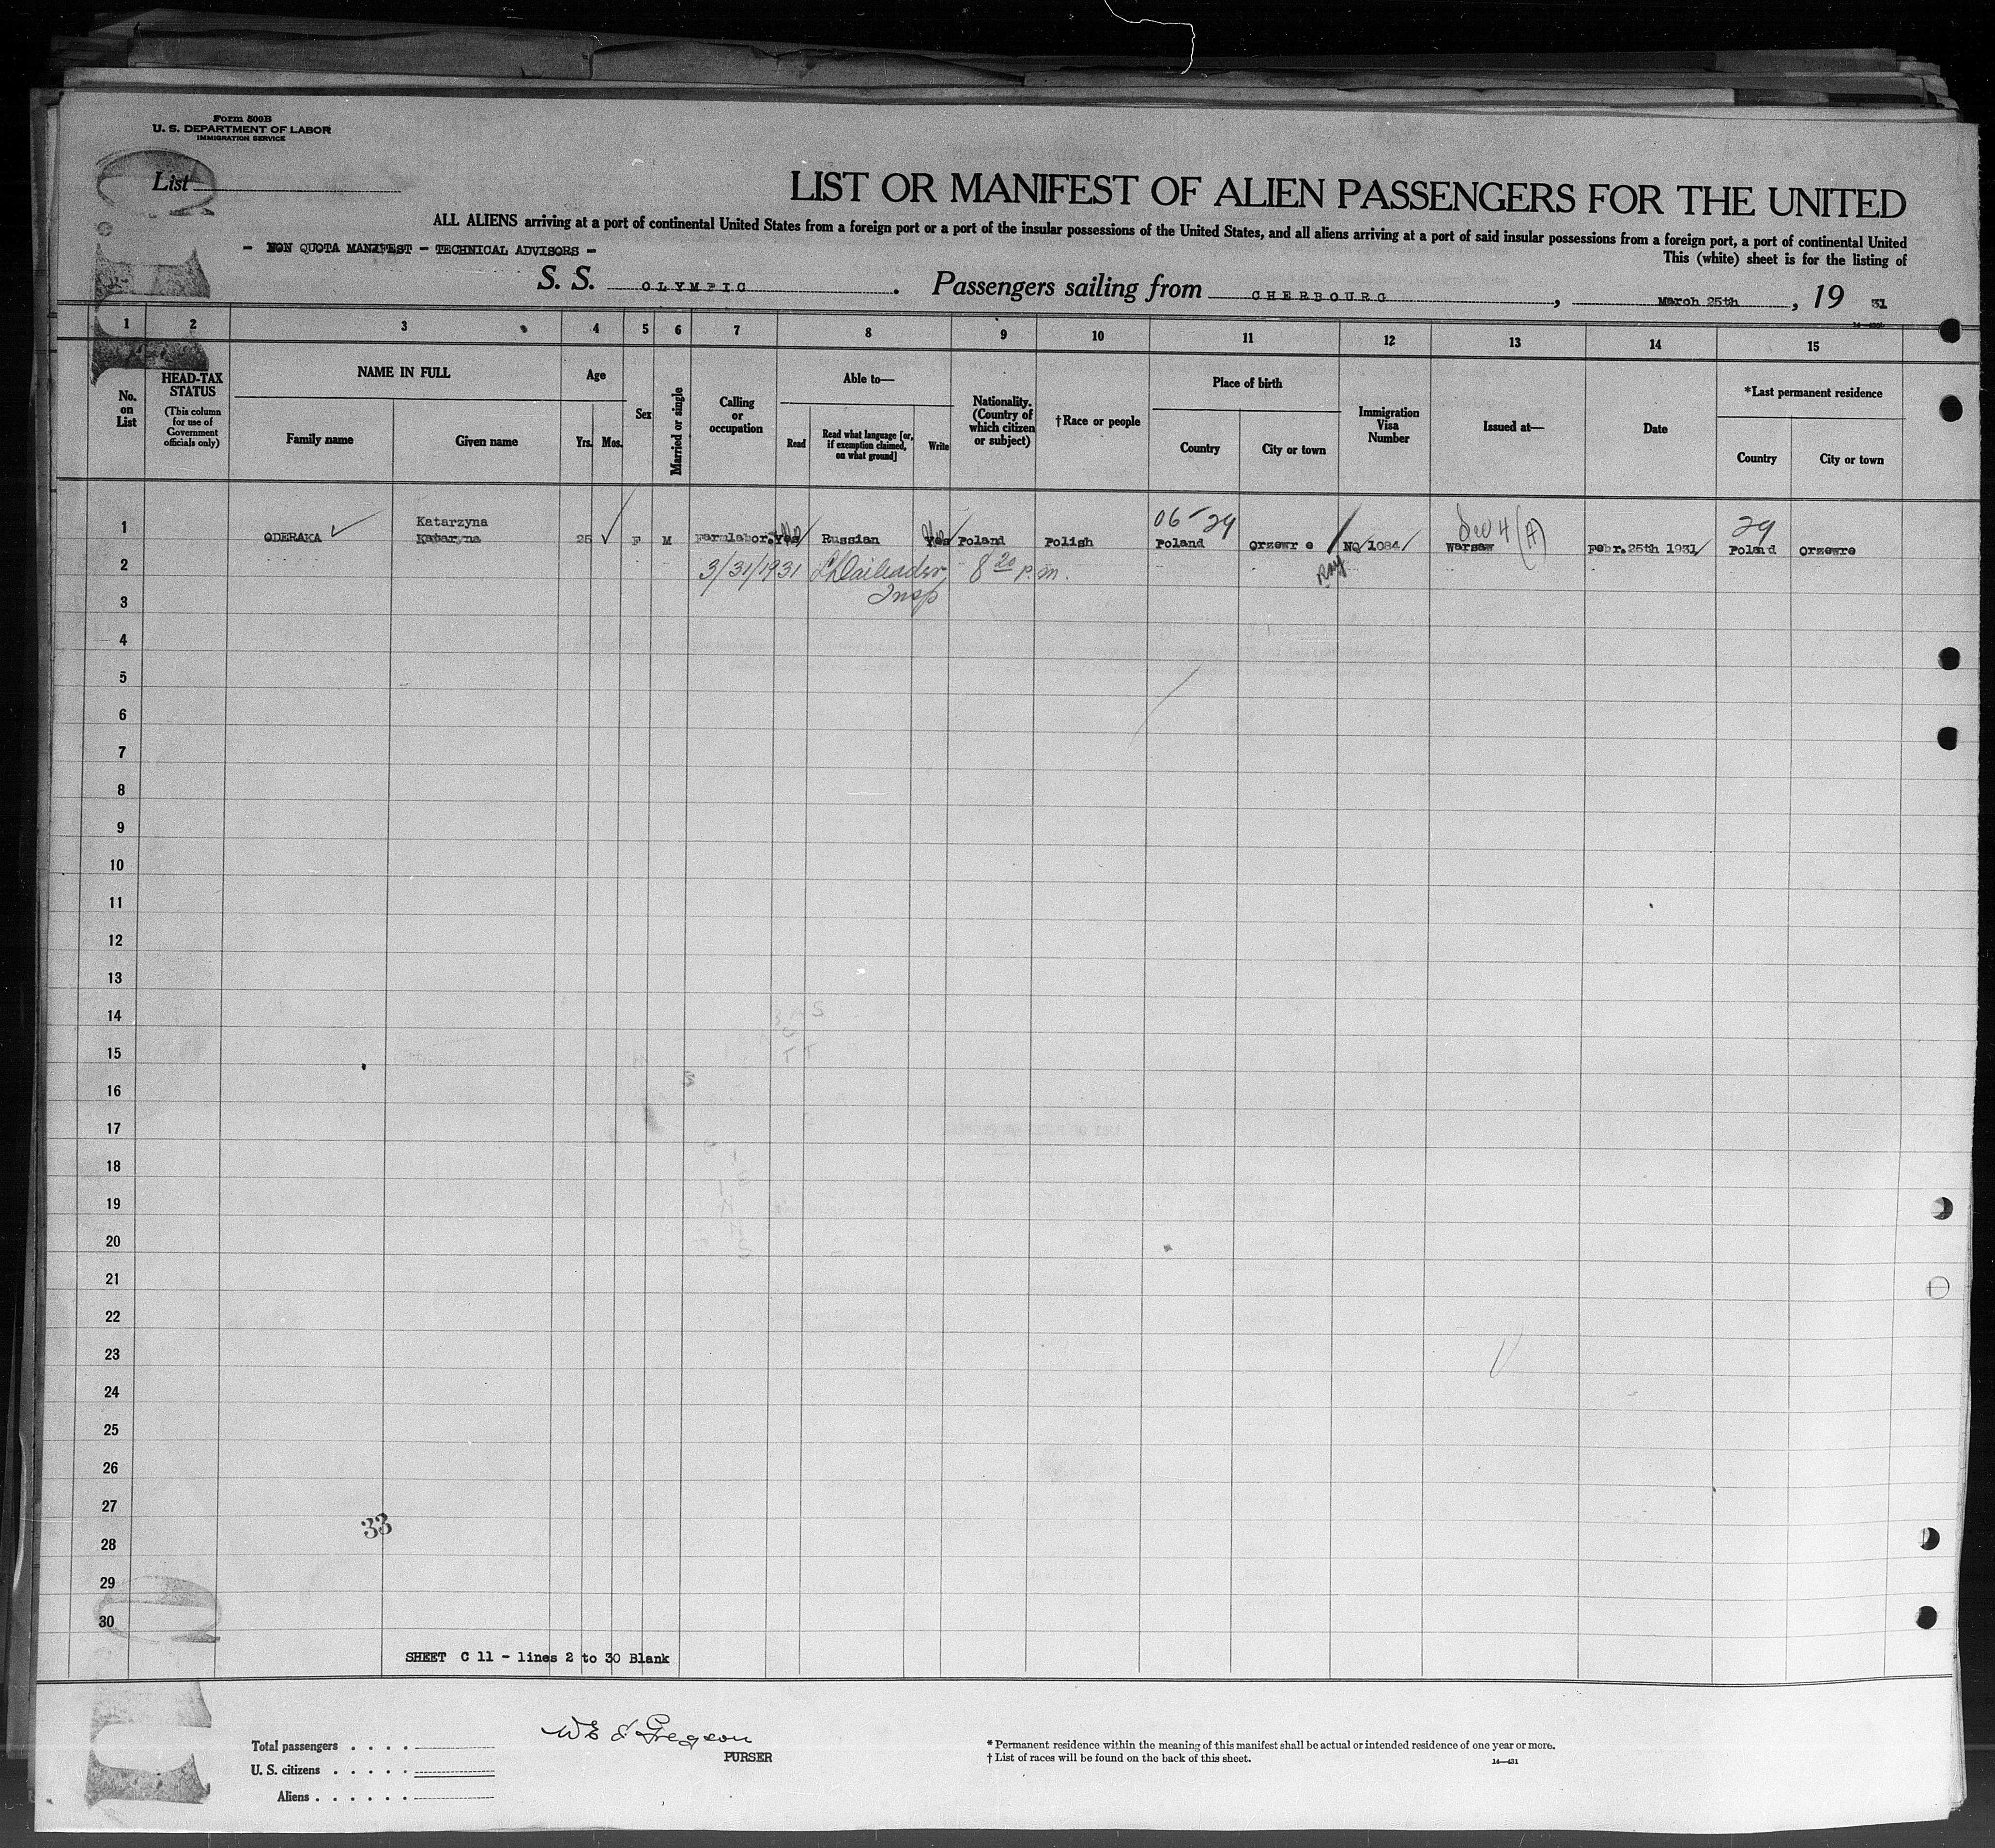 Form 500B
U. S. DEPARTMENT OF LABOR
IMMIGRATION SERVICE
List
LIST OR MANIFEST OF ALIEN PASSENGERS FOR THE UNITED
ALL ALIENS arriving at a port of continental United States from a foreign port or a port of the insular possessions of the United States, and all aliens arriving at a port of said insular possessions from a foreign port, a port of continental United
- NON QUOTA MANIFEST - TECHNICAL ADVISORS -
This (white) sheet is for the listing of
S. S. OLYMPIC. Passengers sailing from CHERBOURG, March 25th, 19 31
1 2 3 4 5 6 7 8 9 10 11 12 13 14 15
No. on List
HEAD-TAX STATUS
(This column for use of Government officials only)
NAME IN FULL
Family name
Given name
Age
Yrs. Mos.
Sex
Married or single
Calling or occupation
Able to—
Read
Read what language [or, if exemption claimed, on what ground]
Write
Nationality. (Country of which citizen or subject)
†Race or people
Place of birth
Country
City or town
Immigration Visa Number
Issued at—
Date
*Last permanent residence
Country
City or town
Katarzyna 06-29 29
1 ODERAKA Kataryna 25 F M Farmlabor. Yes Russian Yes Poland Polish Poland Orzewr e NQ 1084 Warsaw Febr. 25th 1931 Poland Orzewre
2 3/31/1931 8 20 p.m.
Insp
3
4
5
6
7
8
9
10
11
12
13
14
15
16
17
18
19
20
21
22
23
24
25
26
27
33
28
29
30
SHEET C 11 - lines 2 to 30 Blank
PURSER
Total passengers . . . .
U. S. citizens . . . . .
Aliens . . . . . .
* Permanent residence within the meaning of this manifest shall be actual or intended residence of one year or more.
† List of races will be found on the back of this sheet.
14—431